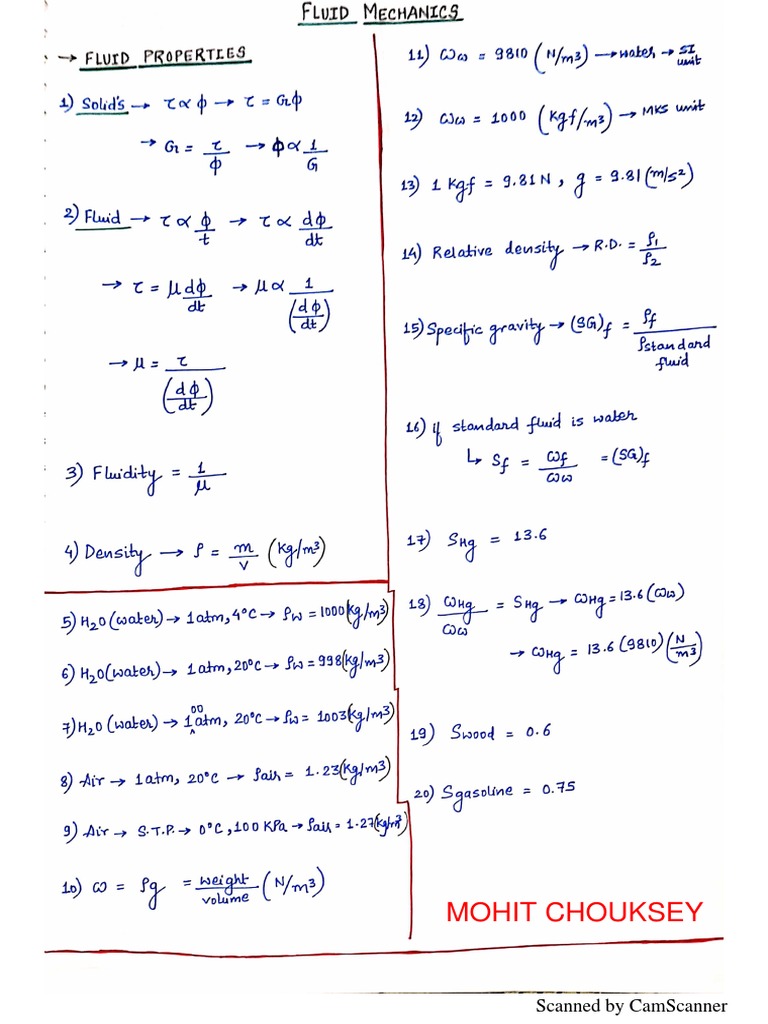 FLUID MECHANICS
→ FLUID PROPERTIES
1) Solid's → τ ∝ ϕ → τ = Gϕ
→ G = τ/ϕ → ϕ ∝ 1/G
2) Fluid → τ ∝ ϕ/t → τ ∝ dϕ/dt
→ τ = μ dϕ/dt → μ ∝ 1/(dϕ/dt)
→ μ = τ/(dϕ/dt)
3) Fluidity = 1/μ
4) Density → ρ = m/v (Kg/m³)
5) H₂O (water) → 1 atm, 4°C → ρw = 1000 (Kg/m³)
6) H₂O (water) → 1 atm, 20°C → ρw = 998 (Kg/m³)
7) H₂O (water) → 100 atm, 20°C → ρw = 1003 (Kg/m³)
8) Air → 1 atm, 20°C → ρair = 1.23 (Kg/m³)
9) Air → S.T.P. → 0°C, 100 KPa → ρair = 1.27 (Kg/m³)
10) ω = ρg = weight/volume (N/m³)
11) ωω = 9810 (N/m³) → water → SI unit
12) ωω = 1000 (Kgf/m³) → MKS unit
13) 1 Kgf = 9.81 N, g = 9.81 (m/s²)
14) Relative density → R.D. = ρ₁/ρ₂
15) Specific gravity → (SG)f = ρf/ρstandard fluid
16) if standard fluid is water
↳ Sf = ωf/ωω = (SG)f
17) SHg = 13.6
18) ωHg/ωω = SHg → ωHg = 13.6 (ωω)
→ ωHg = 13.6 (9810) (N/m³)
19) Swood = 0.6
20) Sgasoline = 0.75
MOHIT CHOUKSEY
Scanned by CamScanner